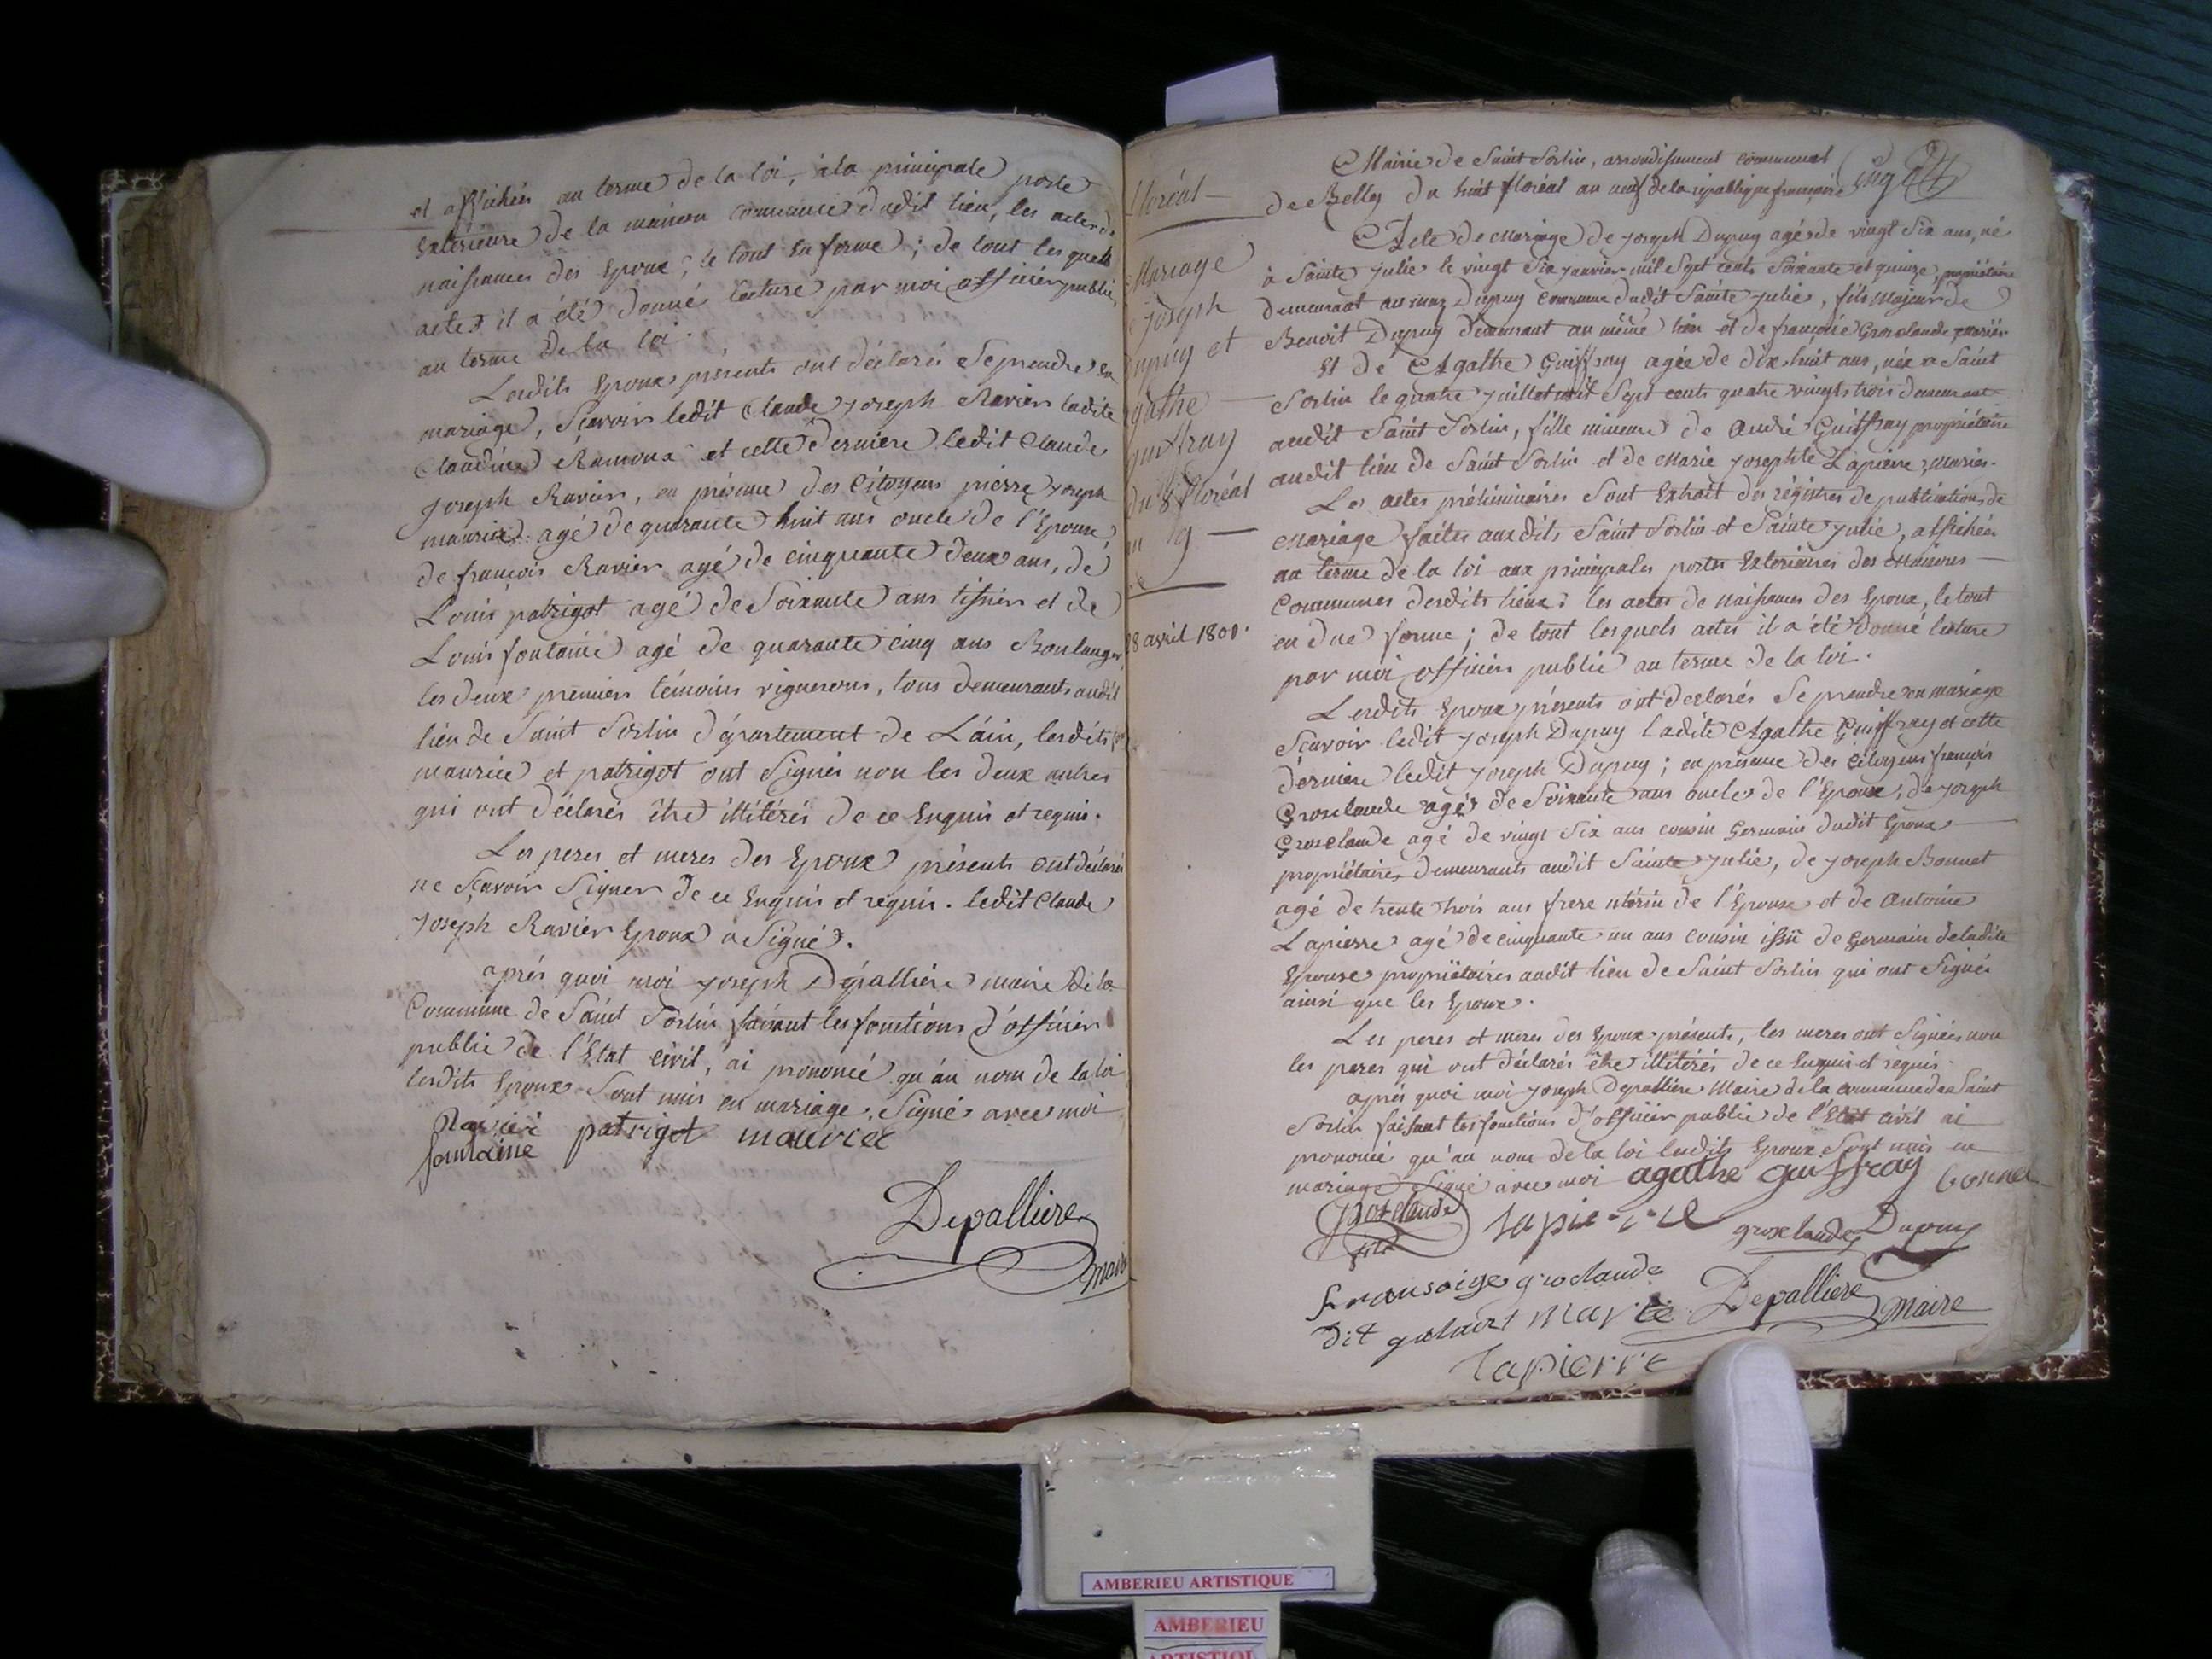 et affichés au terme de la loi, à la principale porte
Extérieure de la maison commune dudit lieu, les actes de
naissances des Epoux, le tout en forme ; de tout lesquels
actes il a été donné lecture par moi officier public,
au terme de la loi.
Lesdits Epoux présents ont déclarés se prendre en
mariage, sçavoir ledit Claude Joseph Ravier ladite
Claudine Ramoux et cette derniere ledit Claude
Joseph Ravier, en présence des Citoyens pierre Joseph
maurice agé de quarante huit ans oncle de l'Epouse
de françois Ravier agé de cinquante deux ans, de
Louis patrigot agé de soixante ans tissier et de
Louis fontaine agé de quarante cinq ans Boulanger,
les deux premiers témoins vignerons, tous demeurants audit
lieu de Saint Sorlin département de L'ain, lesdits
maurice et patrigot ont signés non les deux autres
qui ont déclarés être illitérés de ce Enquis et requis.
Les peres et meres des Epoux présents ont déclaré
ne sçavoir signer de ce Enquis et requis. ledit Claude
Joseph Ravier Epoux a signé.
après quoi moi Joseph Depallière maire de la
Commune de Saint Sorlin faisant les fonctions d'officier
public de l'Etat civil, ai prononcé qu'au nom de la loi
lesdits Epoux sont unis en mariage. Signé avec moi
Ravier patrigot maurice
fontaine
Depalliere
maire
floréal
Mariage
Joseph
Dupuy et
agathe
guiffray
du 8 floréal
an 9
28 avril 1801.
Mairie de Saint Sorlin, arrondissement communal
de Belley du huit floréal an neuf de la république françoise
Acte de Mariage de Joseph Dupuy agé de vingt six ans, né
à Sainte Julie le vingt six janvier mil sept cents soixante et quinze, propriétaire
demeurant au maz Dupuy commune dudit Sainte Julie, fils majeur de
Benoit Dupuy demeurant au même lieu et de françoise Grosclaude
Et de Agathe Guiffray agée de dix huit ans, née a Saint
Sorlin le quatre juillet mil sept cents quatre vingts trois demeurant
audit Saint Sorlin, fille mineure de andré Guiffray propriétaire
audit lieu de Saint Sorlin et de Marie Josephte Lapierre, Mariés.
Les actes préliminaires sont Extrait des régistres de publications de
Mariage faites auxdits Saint Sorlin et Sainte Julie, affichés
au terme de la loi aux principales portes Extérieures des Maisons
Communes desdits lieux ; les actes de naissances des Epoux, le tout
en due forme ; de tout lesquels actes il a été donné lecture
par moi officier public au terme de la loi.
Lesdits Epoux présents ont déclarés se prendre en mariage
Sçavoir ledit Joseph Dupuy ladite Agathe Guiffray et cette
derniere ledit Joseph Dupuy ; en présence des Citoyens françois
Grosclaude agé de soixante ans oncle de l'Epoux, de Joseph
Grosclaude agé de vingt six ans cousin Germain dudit Epoux
propriétaires demeurants audit Sainte Julie, de Joseph Bonnet
agé de trente trois ans frere utérin de l'Epouse et de Antoine
Lapierre agé de cinquante un ans cousin issu de Germain de ladite
Epouse propriétaires audit lieu de Saint Sorlin qui ont signés
ainsi que les Epoux.
Les peres et meres des Epoux présents, les meres ont signées non
les peres qui ont déclarés être illitérés de ce Enquis et requis.
après quoi moi Joseph Depallière Maire de la commune de Saint
Sorlin faisant les fonctions d'officier public de l'Etat civil ai
prononcé qu'au nom de la loi lesdits Epoux sont unis en
mariage Signé avec moi agathe guiffray bonnet
Grosclaude lapierre groselaude Dupuy
fils
fransoise groclaude
dit marie Depalliere maire
lapierre
AMBERIEU ARTISTIQUE
AMBERIEU
ARTISTIQUE